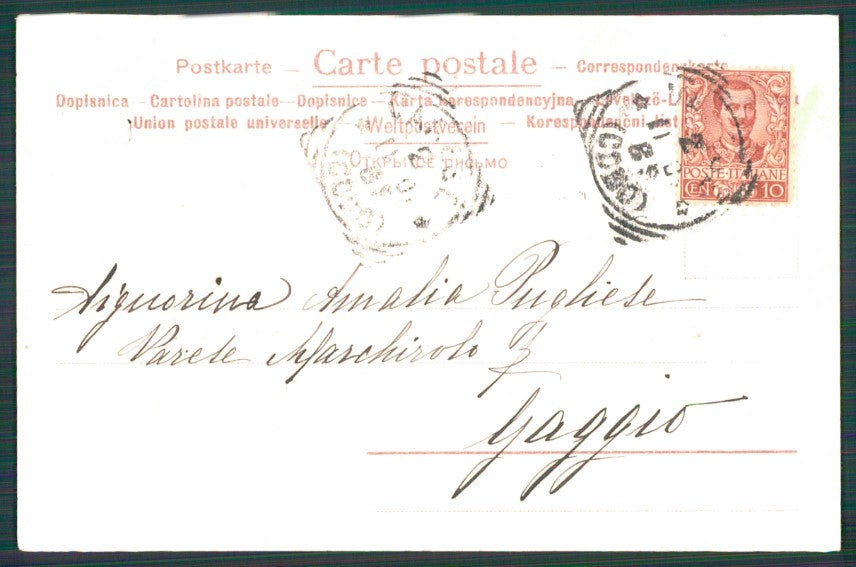 Postkarte – Carte postale – Correspondenzkarte
Dopisnica – Cartolina postale – Dopisnice – Karta korespondencyjna –
Union postale universelle Weltpostverein – Korespondenční
Открытое письмо
POSTE·ITALIANE
CENT 10
(COMO)
(COMO)
Signorina Amalia Pugliese
Varese Marchirolo
Gaggio